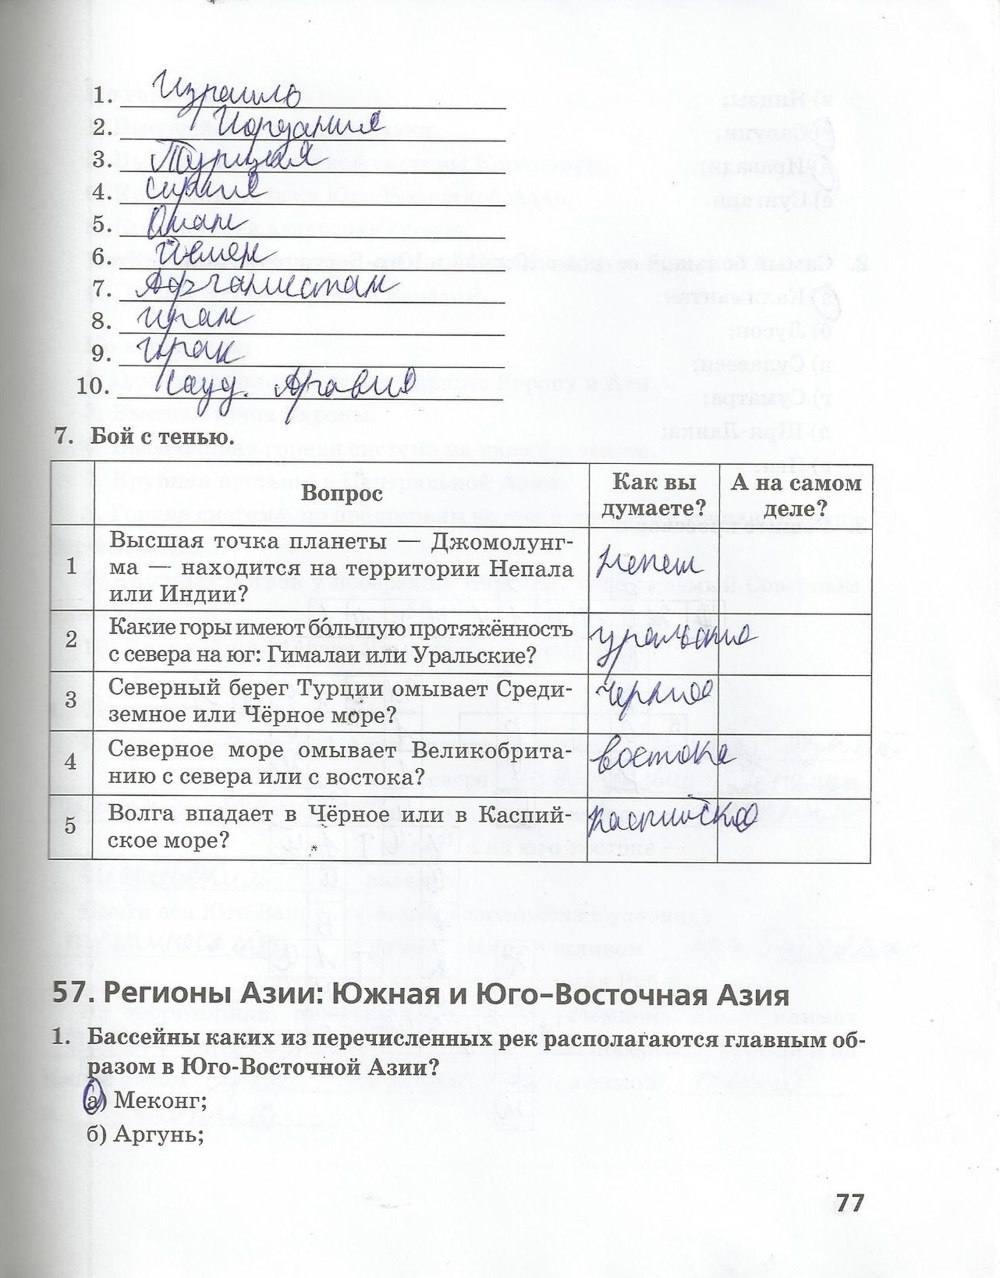 1. Израиль
2. Иордания
3. Турция
4. сирия
5. Оман
6. Йемен
7. Афганистан
8. иран
9. ирак
10. Сауд. Аравия
7. Бой с тенью.
Вопрос
Как вы думаете?
А на самом деле?
1
Высшая точка планеты — Джомолунг-
ма — находится на территории Непала
или Индии?
2
Какие горы имеют бо́льшую протяжённость
с севера на юг: Гималаи или Уральские?
уральские
3
Северный берег Турции омывает Среди-
земное или Чёрное море?
Черное
4
Северное море омывает Великобрита-
нию с севера или с востока?
востока
5
Волга впадает в Чёрное или в Каспий-
ское море?
Каспийское
57. Регионы Азии: Южная и Юго-Восточная Азия
1. Бассейны каких из перечисленных рек располагаются главным об-
разом в Юго-Восточной Азии?
а) Меконг;
б) Аргунь;
77